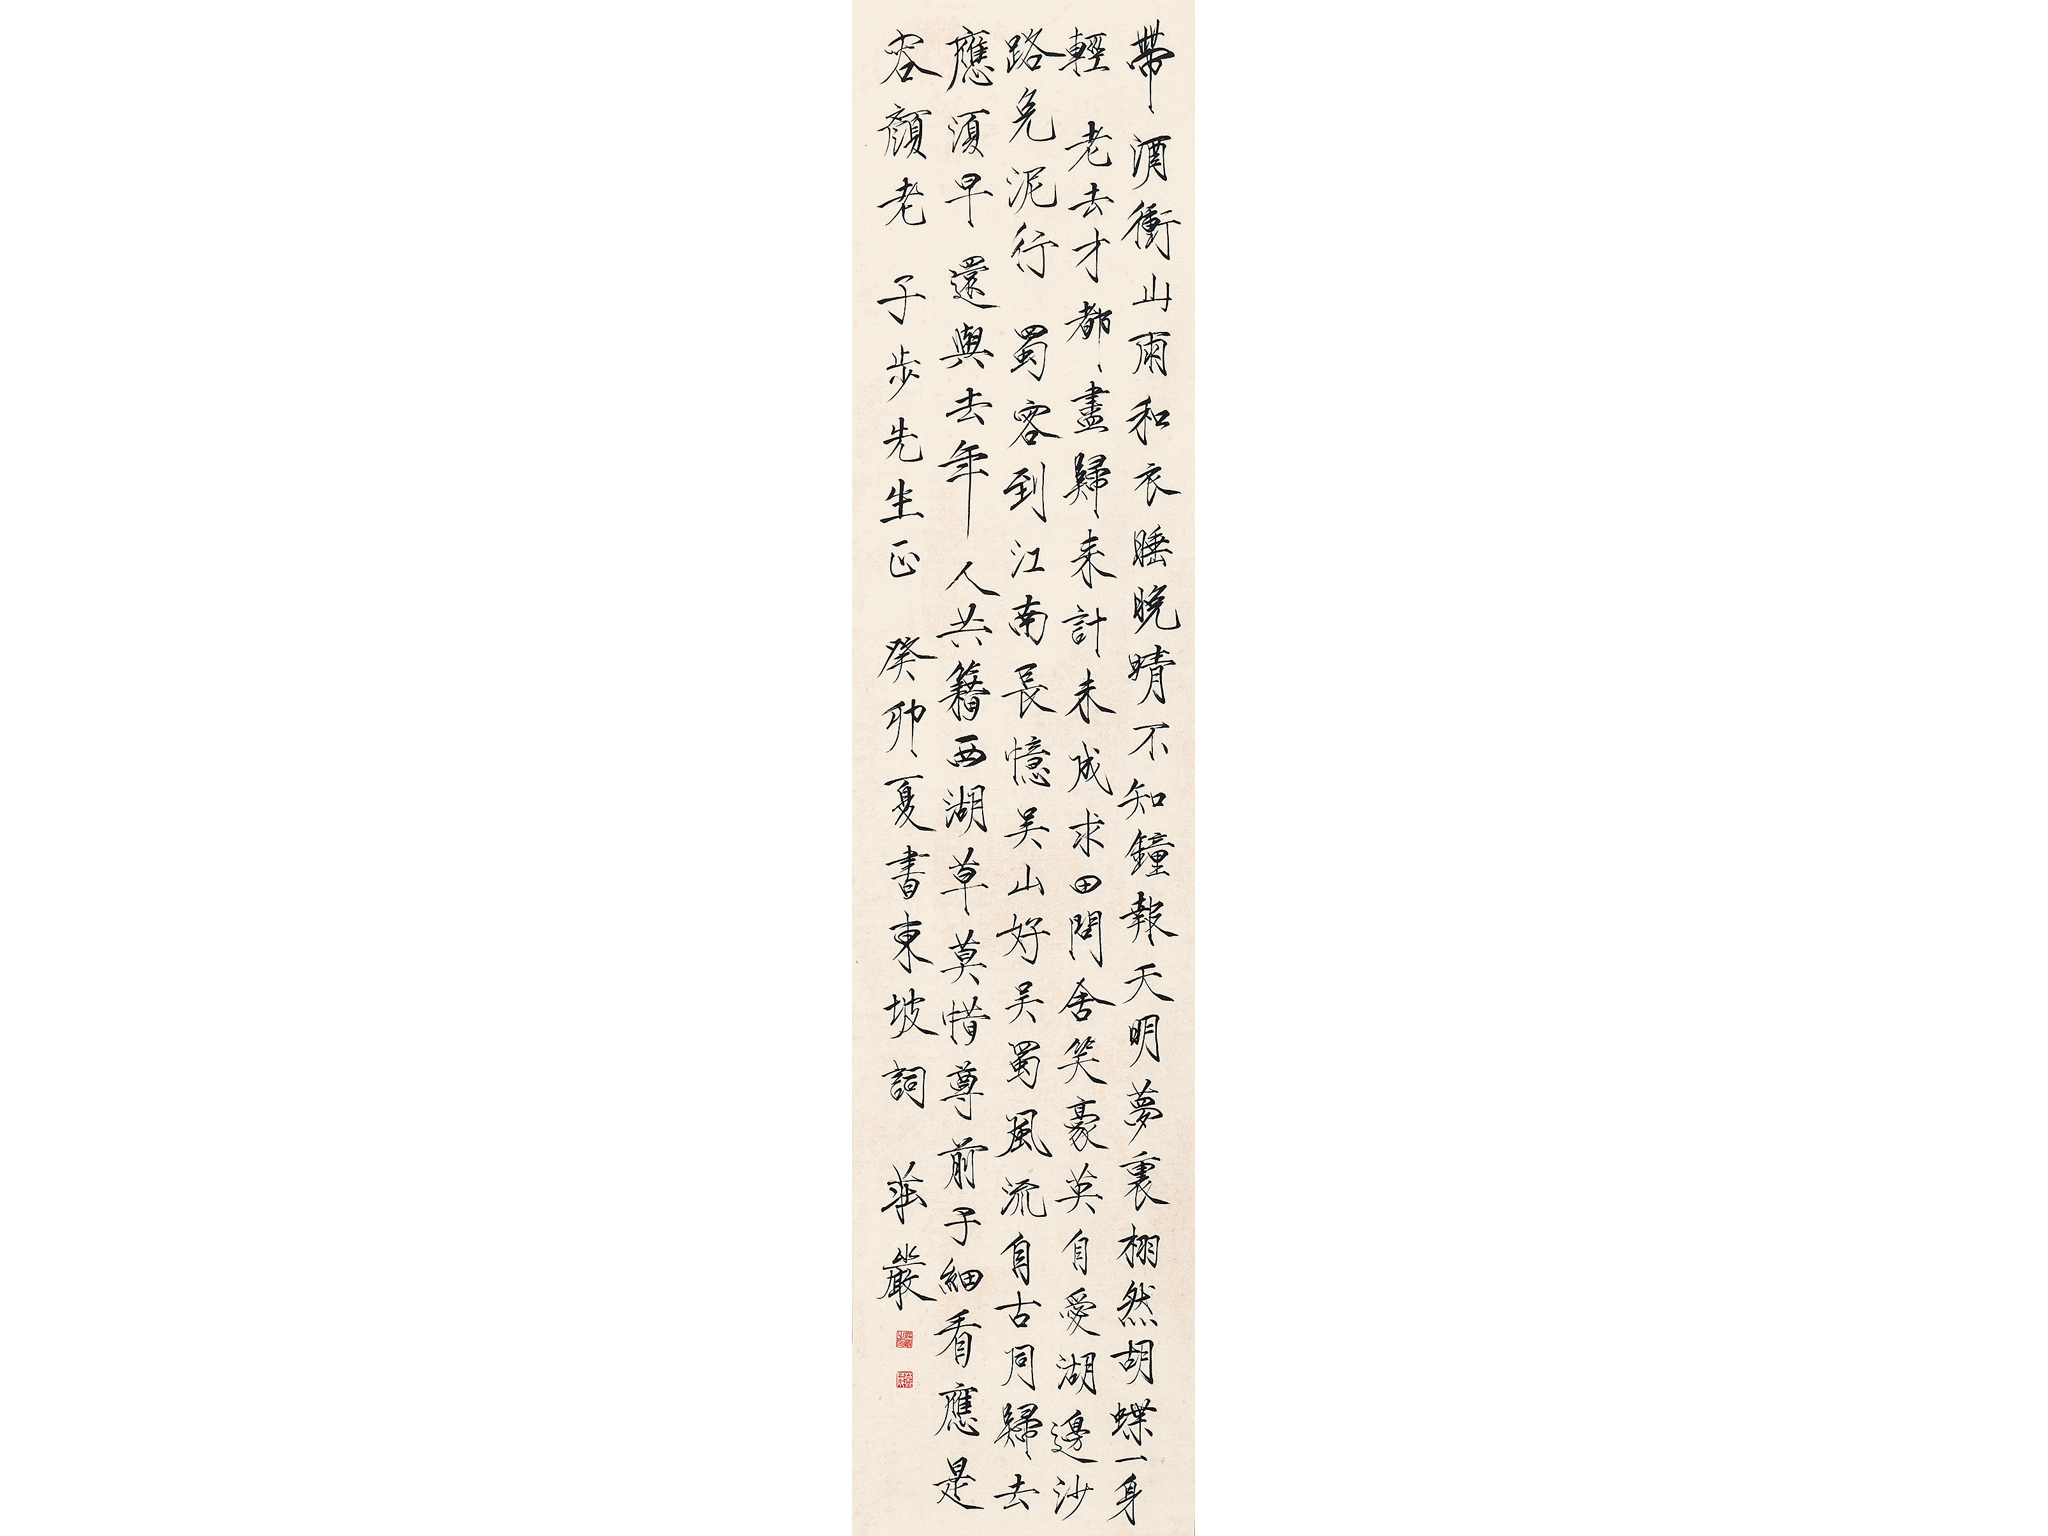 帶酒衝山雨和衣睡晚晴不知鐘報天明夢裏栩然胡蝶一身
輕 老去才都盡歸来計未成求田問舍笑豪英自愛湖邊沙
路免泥行 蜀客到江南長憶吴山好吴蜀風流自古同歸去
應須早 還與去年人共籍西湖草莫惜尊前子細看應是
容顏老 子步先生正 癸卯夏書東坡詞 莊嚴